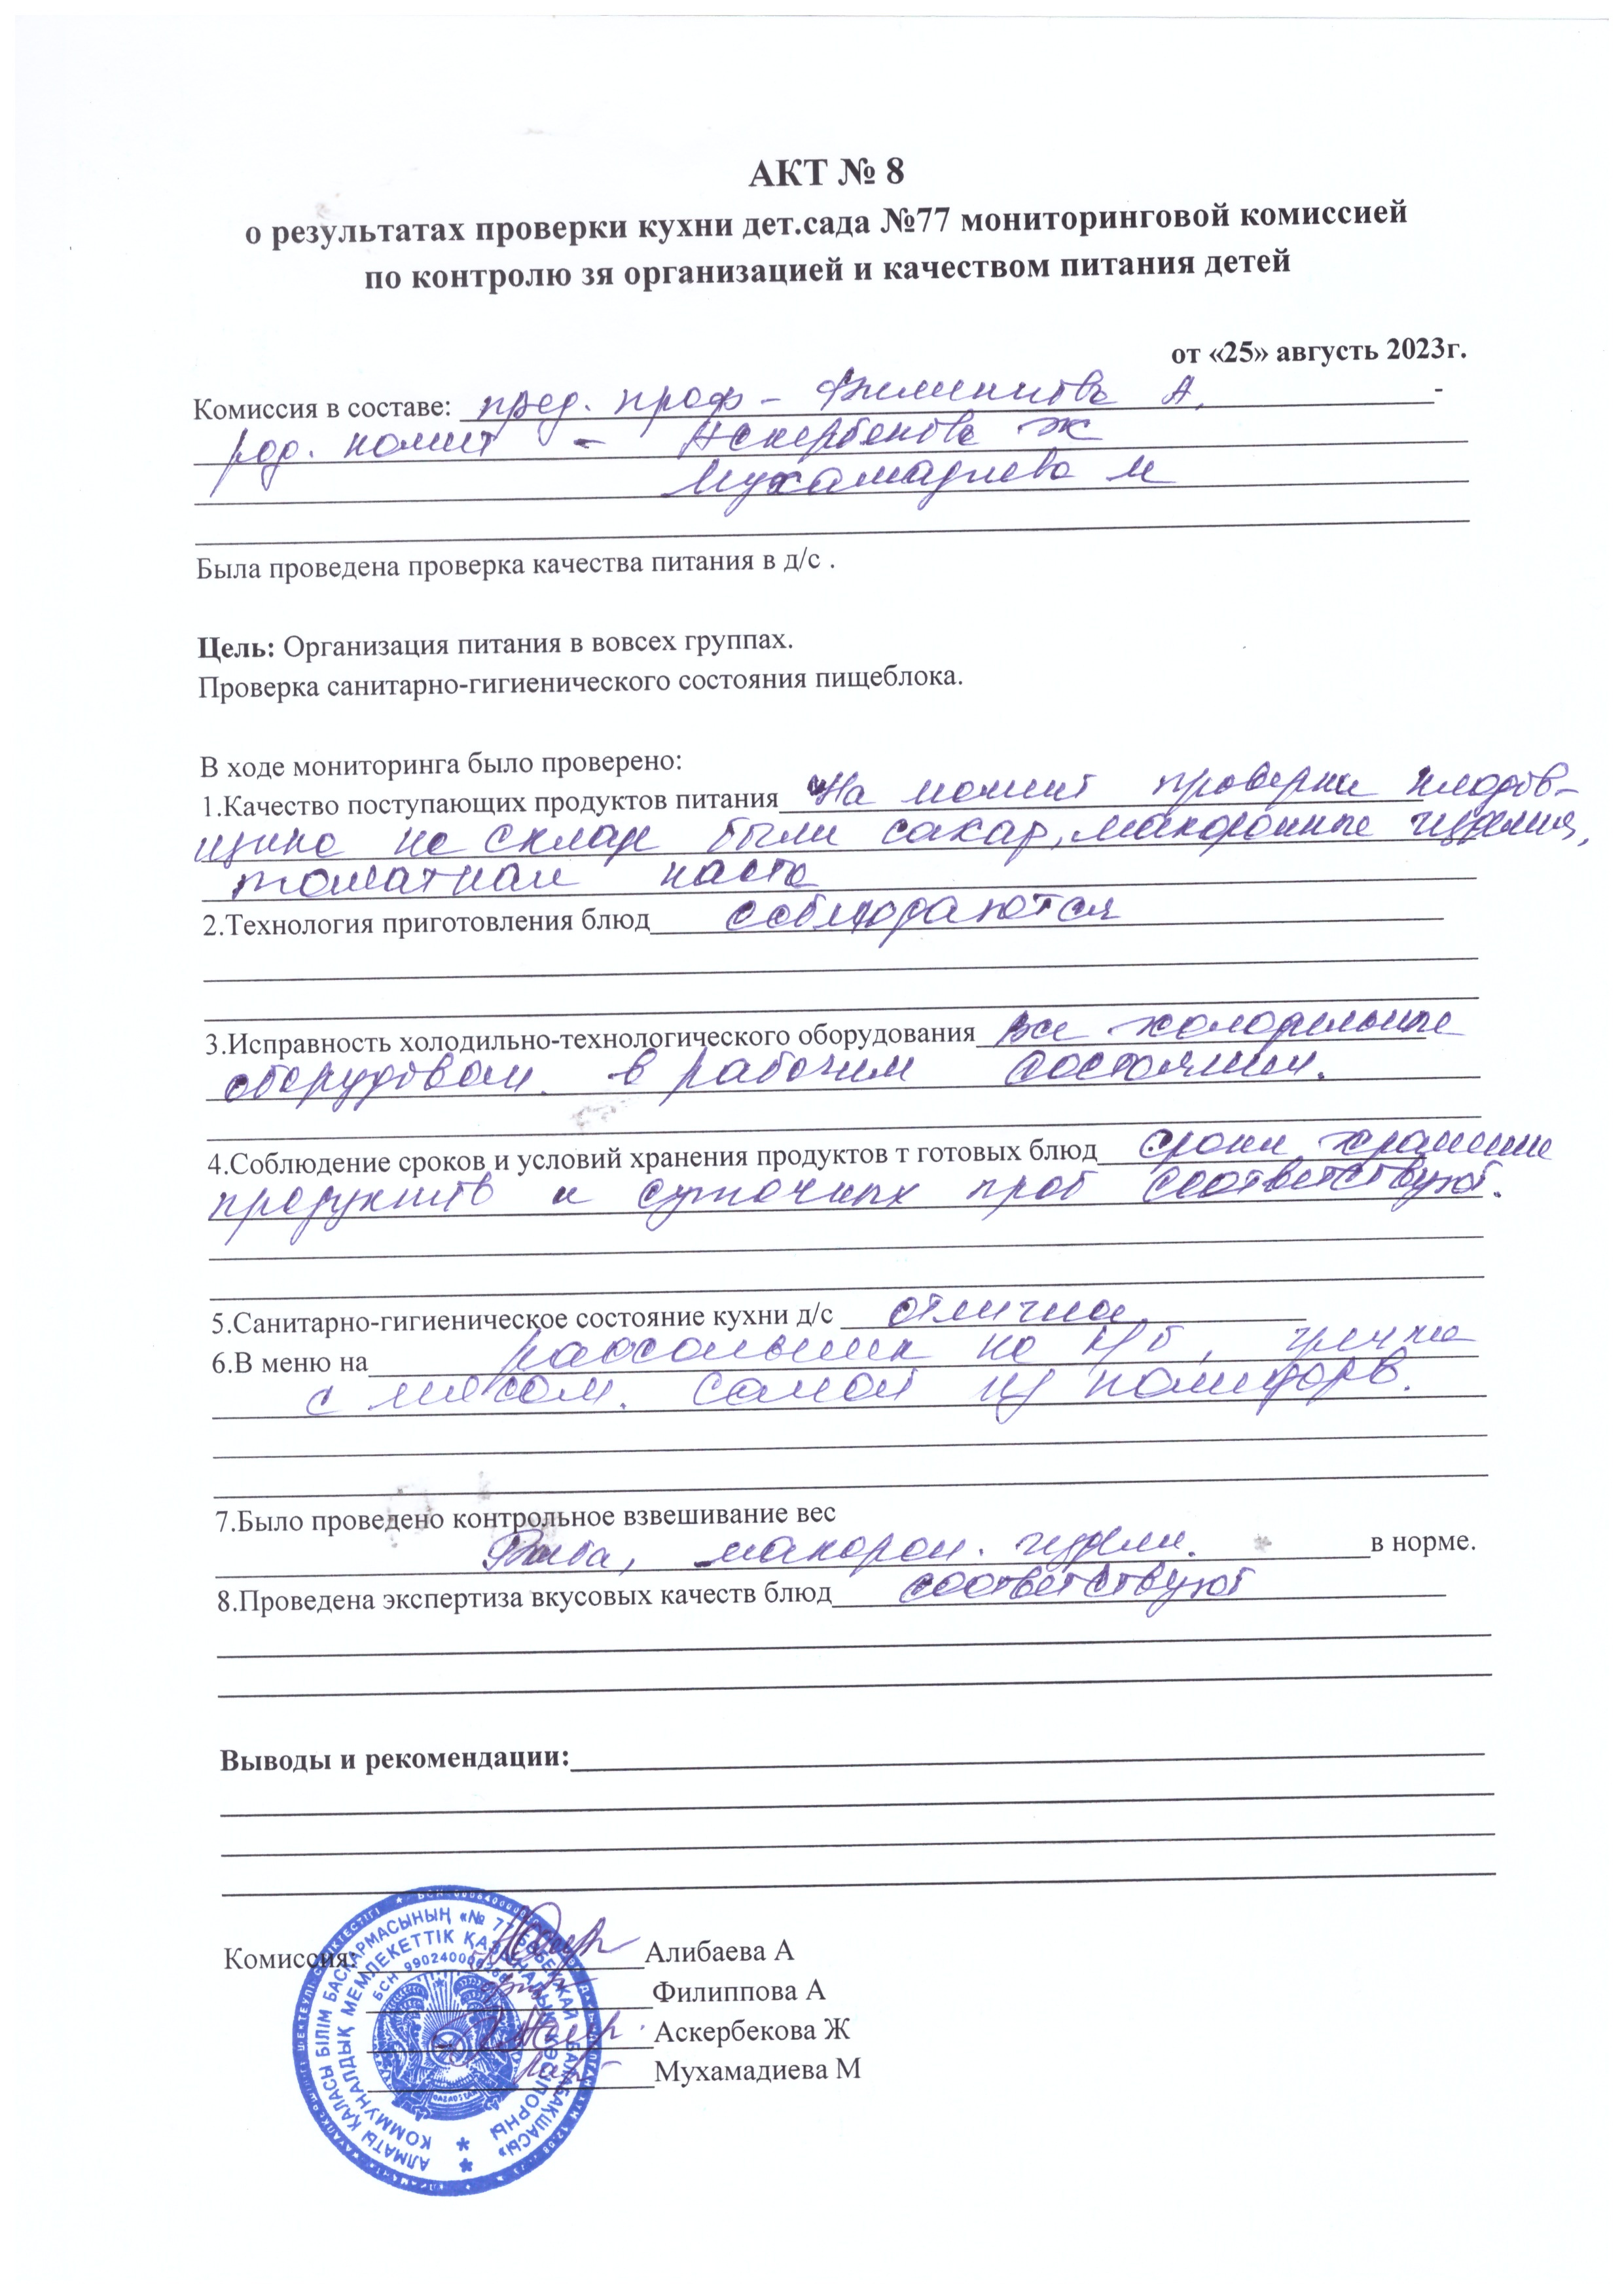 АКТ № 8
о результатах проверки кухни дет.сада №77 мониторинговой комиссией
по контролю зя организацией и качеством питания детей
от «25» августь 2023г.
Комиссия в составе: пред. проф - Филиппова А.
род. комит - Аскербекова Ж
Мухамадиева М
Была проведена проверка качества питания в д/с .
Цель: Организация питания в вовсех группах.
Проверка санитарно-гигиенического состояния пищеблока.
В ходе мониторинга было проверено:
1.Качество поступающих продуктов питания На момит проверки плодов-
щина на склад были сахар, макоронные изделия,
томатная паста
2.Технология приготовления блюд соблюдаются
3.Исправность холодильно-технологического оборудования все холодильные
оборудован. в рабочим состоянии.
4.Соблюдение сроков и условий хранения продуктов т готовых блюд сроки хранение
продуктов и суточных проб соответствуют.
5.Санитарно-гигиеническое состояние кухни д/с отлична
6.В меню на рассольник на к/б, гречка
с мясом. салат из помидорв.
7.Было проведено контрольное взвешивание вес
Рыба, макорон. издели. в норме.
8.Проведена экспертиза вкусовых качеств блюд соответствуют
Выводы и рекомендации:
Комиссия: Алибаева А
Филиппова А
Аскербекова Ж
Мухамадиева М
АЛМАТЫ ҚАЛАСЫ БІЛІМ БАСҚАРМАСЫНЫҢ «№ 77 БӨБЕКЖАЙ БАЛАБАҚШАСЫ»
КОММУНАЛДЫҚ МЕМЛЕКЕТТІК ҚАЗЫНАЛЫҚ КӘСІПОРНЫ